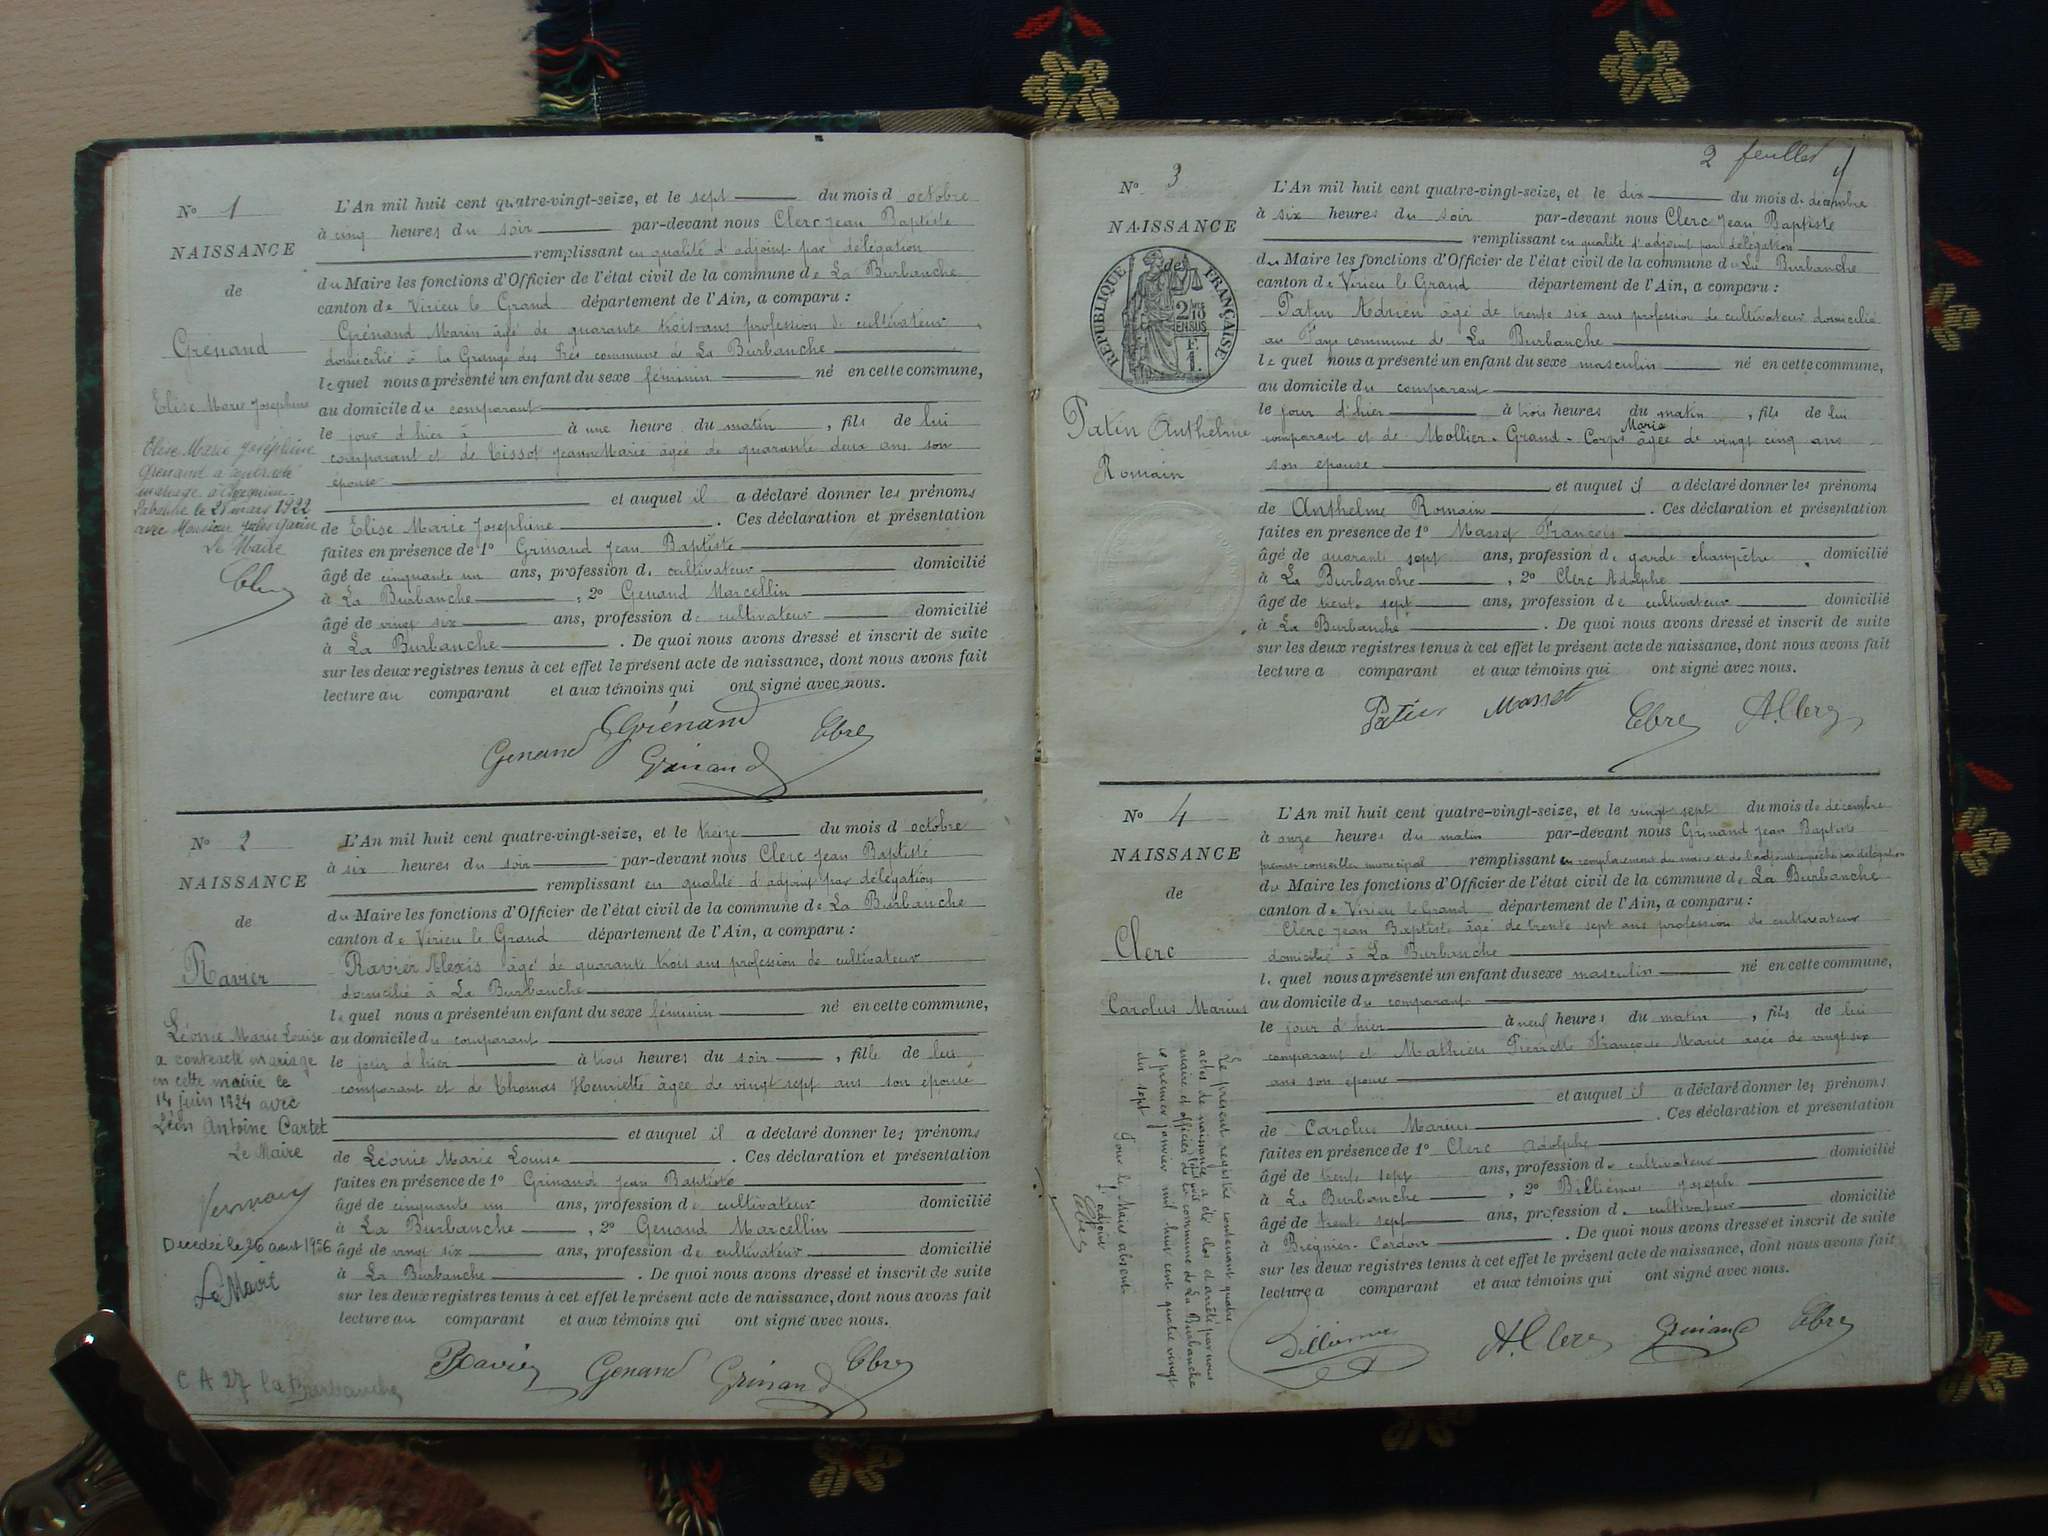 N° 1
NAISSANCE
de
Grénand
Elise Marie Josephine
Elise Marie Joséphine
Grenand a contracté
mariage à
le 28 mars 1922
avec Monsieur Jules
Le Maire
L'An mil huit cent quatre-vingt-seize, et le sept du mois d octobre
à cinq heures du soir par-devant nous Clerc Jean Baptiste
remplissant en qualité d'adjoint par délégation
du Maire les fonctions d'Officier de l'état civil de la commune de La Burbanche
canton de Virieu le Grand département de l'Ain, a comparu :
Grénand Marin âgé de quarante trois ans profession de cultivateur
domicilié à la Grange des Prés commune de La Burbanche
lequel nous a présenté un enfant du sexe féminin né en cette commune,
au domicile du comparant
le jour d'hier à à une heure du matin , fils de lui
comparant et de Tissot Jeanne Marie âgée de quarante deux ans son
epouse
et auquel il a déclaré donner les prénoms
de Elise Marie Josephine . Ces déclaration et présentation
faites en présence de 1° Grinand Jean Baptiste
âgé de cinquante un ans, profession de cultivateur domicilié
à La Burbanche , 2° Genand Marcellin
âgé de vingt six ans, profession de cultivateur domicilié
à La Burbanche . De quoi nous avons dressé et inscrit de suite
sur les deux registres tenus à cet effet le présent acte de naissance, dont nous avons fait
lecture au comparant et aux témoins qui ont signé avec nous.
Genand Grénand Grinand Clerc
N° 2
NAISSANCE
de
Ravier
Léonie Marie Louise
a contracté mariage
en cette mairie le
14 juin 1924 avec
Léon Antoine Cartet
Le Maire
Décédée le 26 août 1956
Le Maire
C A 27 la Burbanche
L'An mil huit cent quatre-vingt-seize, et le treize du mois d octobre
à six heures du soir par-devant nous Clerc Jean Baptiste
remplissant en qualité d'adjoint par délégation
du Maire les fonctions d'Officier de l'état civil de la commune de La Burbanche
canton de Virieu le Grand département de l'Ain, a comparu :
Ravier Alexis âgé de quarante trois ans profession de cultivateur
domicilié à La Burbanche
lequel nous a présenté un enfant du sexe féminin né en cette commune,
au domicile du comparant
le jour d'hier à trois heures du soir , fille de lui
comparant et de Thomas Henriette âgée de vingt sept ans son epouse
et auquel il a déclaré donner les prénoms
de Léonie Marie Louise . Ces déclaration et présentation
faites en présence de 1° Grinand Jean Baptiste
âgé de cinquante un ans, profession de cultivateur domicilié
à La Burbanche , 2° Genand Marcellin
âgé de vingt six ans, profession de cultivateur domicilié
à La Burbanche . De quoi nous avons dressé et inscrit de suite
sur les deux registres tenus à cet effet le présent acte de naissance, dont nous avons fait
lecture au comparant et aux témoins qui ont signé avec nous.
Ravier Genand Grinand Clerc
2 feuillet
N° 3
NAISSANCE
de
RÉPUBLIQUE FRANÇAISE
2/10 EN SUS
F. 1
Patin Anthelme
Romain
L'An mil huit cent quatre-vingt-seize, et le dix du mois de décembre
à six heures du soir par-devant nous Clerc Jean Baptiste
remplissant en qualité d'adjoint par délégation
du Maire les fonctions d'Officier de l'état civil de la commune de La Burbanche
canton de Virieu le Grand département de l'Ain, a comparu :
Patin Adrien âgé de trente six ans profession de cultivateur domicilié
au Fays commune de La Burbanche
lequel nous a présenté un enfant du sexe masculin né en cette commune,
au domicile du comparant
le jour d'hier à trois heures du matin , fils de lui
comparant et de Mollier-Grand-Corps Marie âgée de vingt cinq ans
son epouse
et auquel il a déclaré donner les prénoms
de Anthelme Romain . Ces déclaration et présentation
faites en présence de 1° Masset François
âgé de quarante sept ans, profession de garde champêtre domicilié
à La Burbanche , 2° Clerc Adolphe
âgé de trente sept ans, profession de cultivateur domicilié
à La Burbanche . De quoi nous avons dressé et inscrit de suite
sur les deux registres tenus à cet effet le présent acte de naissance, dont nous avons fait
lecture a comparant et aux témoins qui ont signé avec nous.
Patin Masset Clerc A. Clerc
N° 4
NAISSANCE
de
Clerc
Carolus Marius
L'An mil huit cent quatre-vingt-seize, et le vingt sept du mois de décembre
à onze heures du matin par-devant nous Grinand Jean Baptiste
premier conseiller municipal remplissant en remplacement du maire et de l'adjoint empêché par délégation
du Maire les fonctions d'Officier de l'état civil de la commune de La Burbanche
canton de Virieu le Grand département de l'Ain, a comparu :
Clerc Jean Baptiste âgé de trente sept ans profession de cultivateur
domicilié à La Burbanche
lequel nous a présenté un enfant du sexe masculin né en cette commune,
au domicile du comparant
le jour d'hier à neuf heures du matin , fils de lui
comparant et Mathieu Pierrette Françoise Marie agée de vingt six
ans son epouse
et auquel il a déclaré donner les prénoms
de Carolus Marius . Ces déclaration et présentation
faites en présence de 1° Clerc Adolphe
âgé de trente sept ans, profession de cultivateur domicilié
à La Burbanche , 2° Billiémaz Joseph
âgé de trente sept ans, profession de cultivateur domicilié
à Bregnier-Cordon . De quoi nous avons dressé et inscrit de suite
sur les deux registres tenus à cet effet le présent acte de naissance, dont nous avons fait
lecture a comparant et aux témoins qui ont signé avec nous.
A. Clerc Grinand Clerc
Le présent registre contenant quatre
actes de naissance a été clos et arrêté par nous
maire et officier de l'état civil de la commune de La Burbanche
ce premier janvier mil huit cent quatre vingt
dix sept
Pour le Maire absent
L'adjoint
Clerc